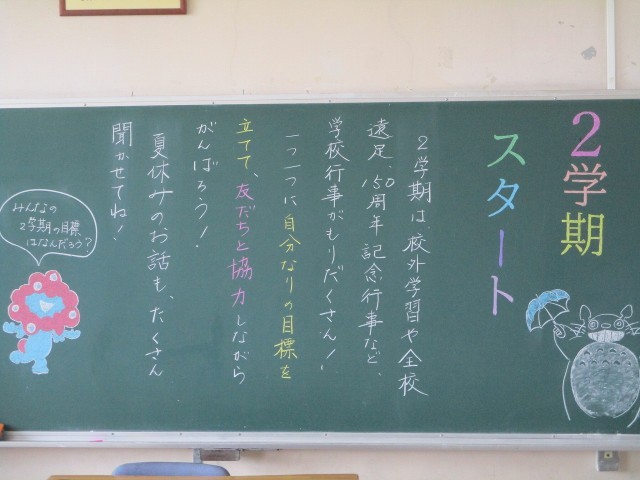 2学期
スタート
2学期は、校外学習や全校
遠足、150周年記念行事など、
学校行事がもりだくさん!
一つ一つに自分なりの目標を
立てて、友だちと協力しながら
がんばろう!
夏休みのお話も、たくさん
聞かせてね!
みんなの
2学期の目標
はなんだろう?